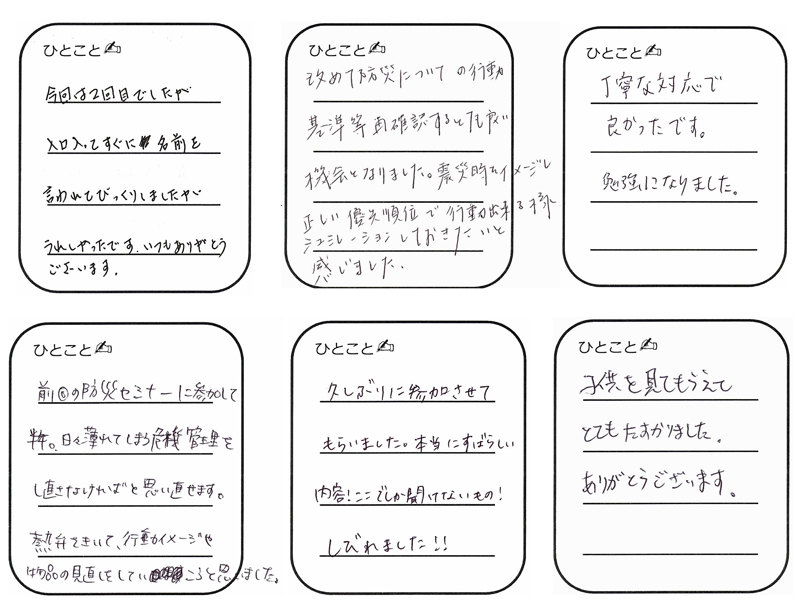 ひとこと
今回は2回目でしたが
入口入ってすぐに名前を
言われてびっくりしましたが
うれしかったです。いつもありがとう
ございます。
ひとこと
改めて防災についての行動
基準等再確認するとても良い
機会となりました。震災時をイメージし
正しい優先順位で行動出来る様に
シュミレーションしておきたいと
感じました。
ひとこと
丁寧な対応で
良かったです。
勉強になりました。
ひとこと
前回の防災セミナーに参加して
半年。日々薄れてしまう危機管理を
し直さなければと思い直せます。
熱弁をきいて、行動イメージや
物品の見直しをしていこうと思いました。
ひとこと
久しぶりに参加させて
もらいました。本当にすばらしい
内容!ここでしか聞けないもの!
しびれました!!
ひとこと
子供を見てもらえて
とてもたすかりました。
ありがとうございます。